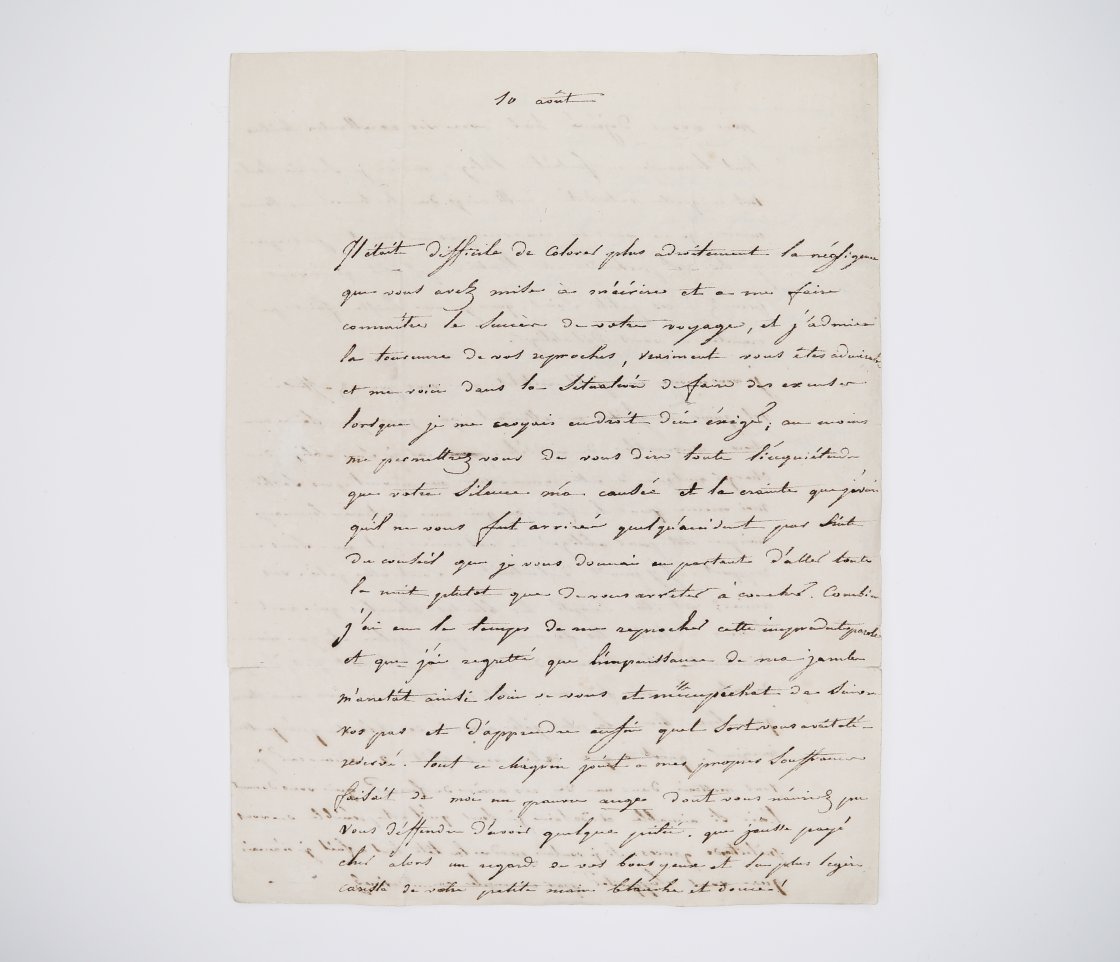 10 août
Il était difficile de colorer plus adroitement la négligence
que vous avez mise à m'écrire et a me faire
connaitre le succès de votre voyage, et j'admire
la tournure de vos reproches, vraiment vous êtes
et me voici dans la de faire des excuses
lorsque je me croyais endroit d'en éxiger; au moins
me permettrez vous de vous dire toute l'inquiétude
que votre silence m'a causée et la crainte que j'avais
qu'il ne vous fut arrivée quelqu'accident par suite
du conseil que je vous donnais en partant d'aller toute
la nuit plutot que de vous arrêter à coucher. Combien
j'ai eu le temps de me reprocher cette imprudente parole
et que j'ai regretté que l'impuissance de ma jambe
m'arretat ainsi loin de vous et m'empéchat de suivre
vos pas et d'apprendre enfin quel sort vous avait été
reservé. tout ce chagrin joint a mes propres souffrances
faisait de moi un pauvre ange dont vous n'auriez pu
vous déffendre d'avoir quelque pitié. que j'eusse payé
cher alors un regard de vos bons yeux et la plus légère
de votre petite main blanche et douce!